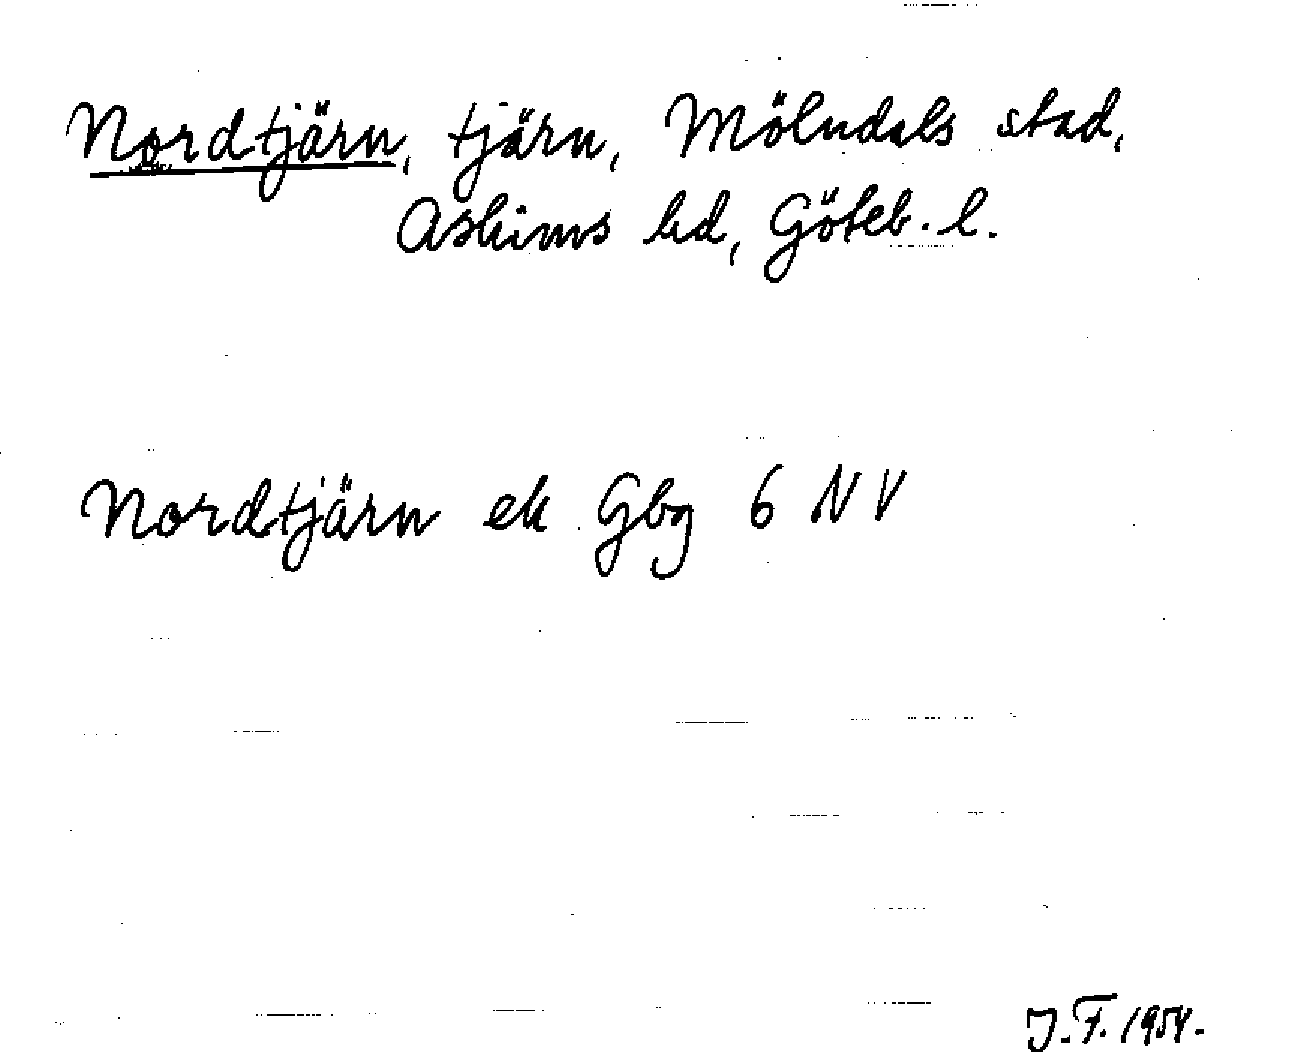 Nordtjärn, tjärn, Mölndals stad,
Askims hd, Göteb. l.
Nordtjärn ek Gbg 6 NV
J.F. 1954.